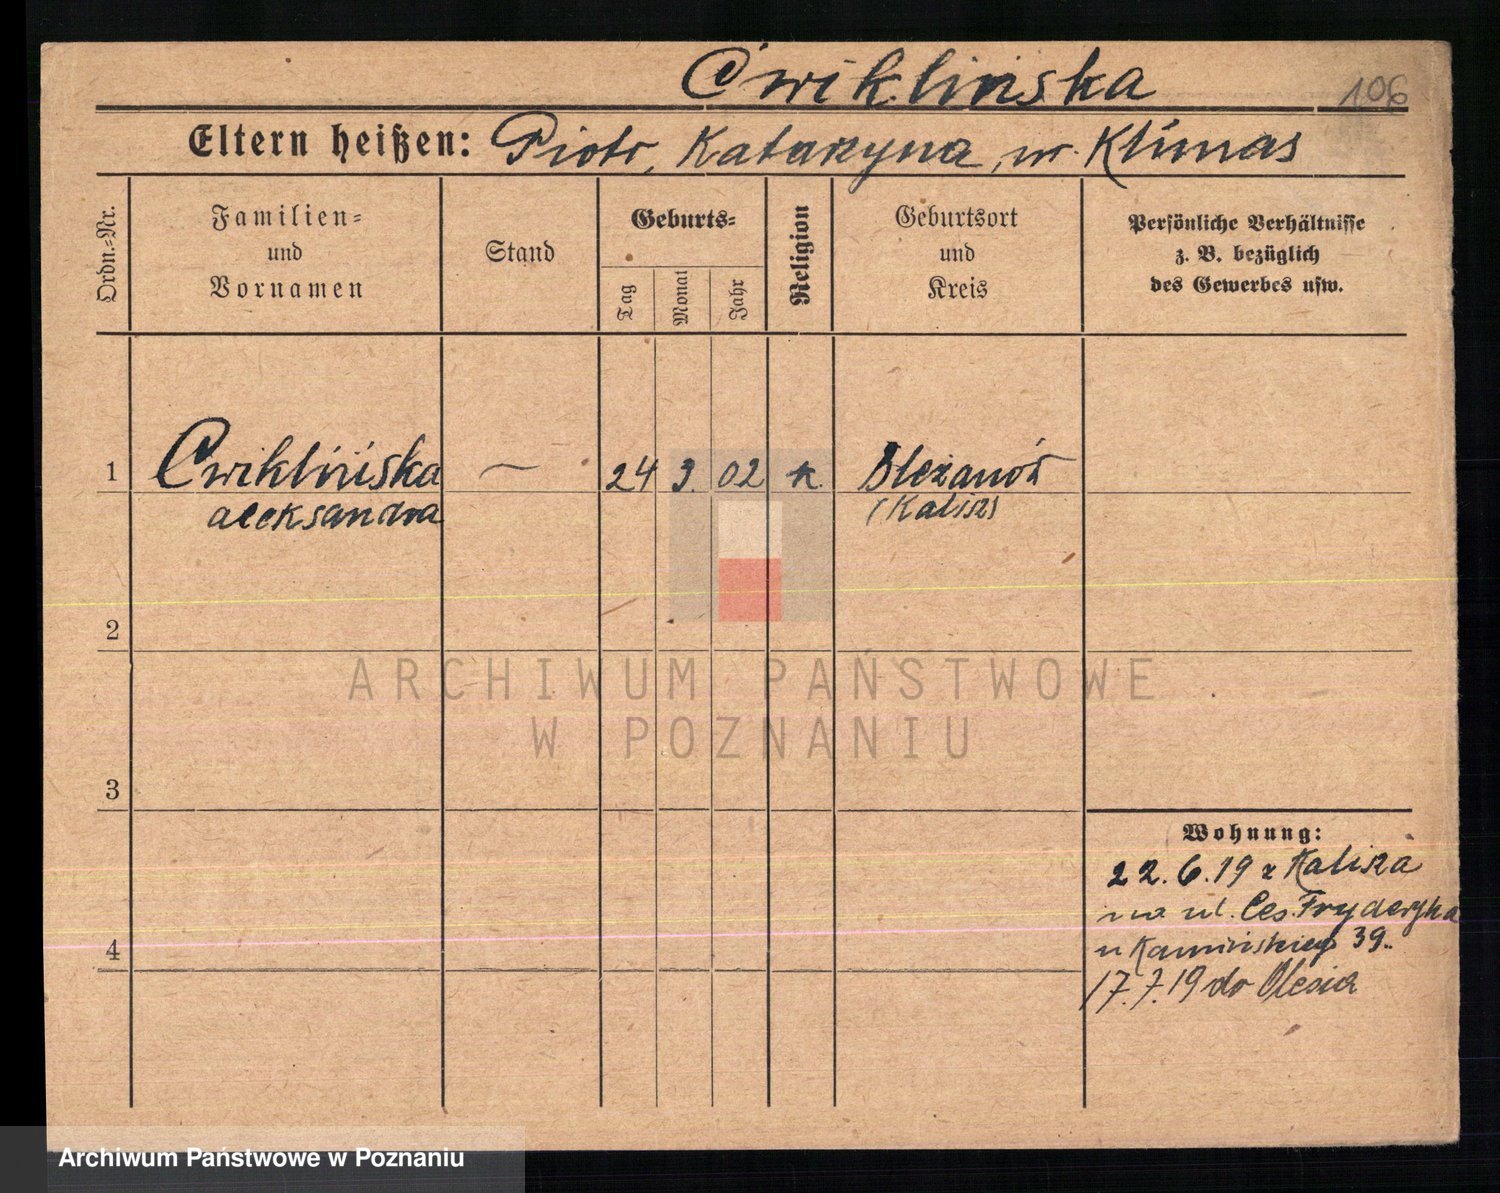 Ćwiklińska
106
Eltern heißen: Piotr, Katarzyna, ur. Klimas
Ordn.-Nr.
Familien-
und
Vornamen
Stand
Geburts-
Tag
Monat
Jahr
Religion
Geburtsort
und
Kreis
Persönliche Verhältnisse
z. B. bezüglich
des Gewerbes usw.
1 Cwiklińska — 24 3. 02 k.
aleksandra (Kalisz)
2
ARCHIWUM PAŃSTWOWE
W POZNANIU
3
Wohnung:
22.6.19 z Kalisza
na ul. Ces. Fryderyka
u Kamińskiego 39.
4
17.7.19 do Olesia
Archiwum Państwowe w Poznaniu